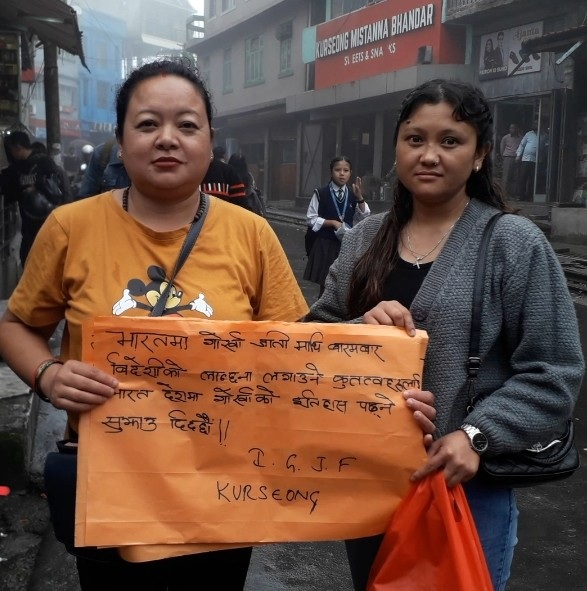 KURSEONG MISTANNA BHANDAR
SWEETS & SNACKS
भारतमा गोर्खा जाती माथि बारमबार
विदेशीको लाञ्छना लगाउने कुतत्वहरूलाई
भारत देशमा गोर्खाको इतिहास पढ्ने
सुझाउ दिदछौं ||
I. G. J. F
KURSEONG